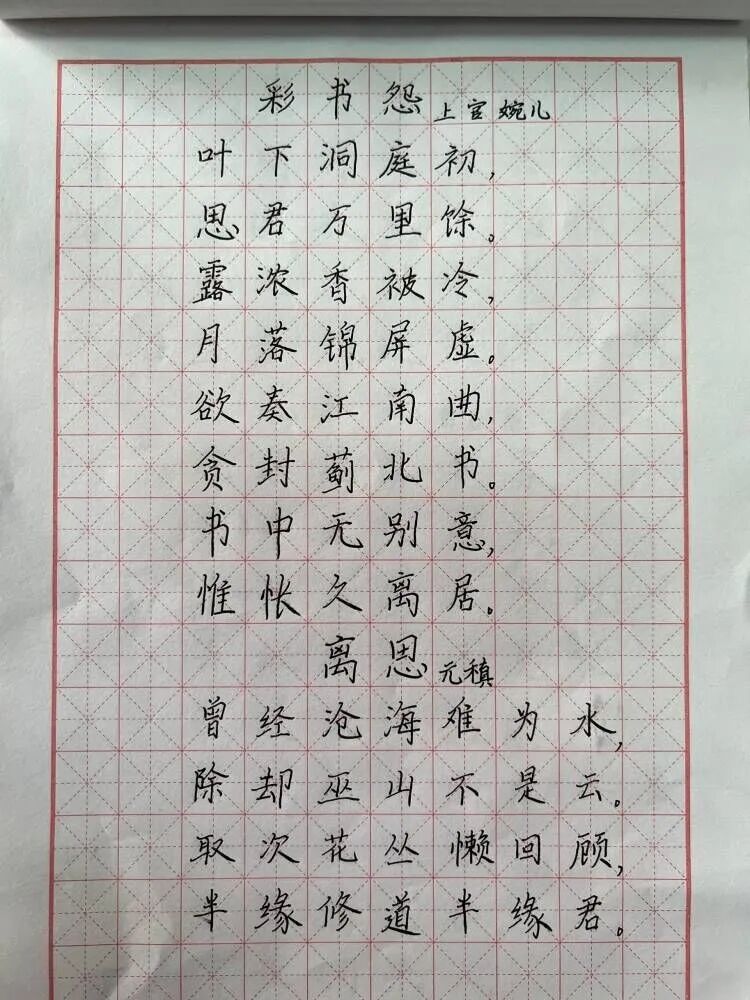 彩书怨 上官婉儿
叶下洞庭初，
思君万里馀。
露浓香被冷，
月落锦屏虚。
欲奏江南曲，
贪封蓟北书。
书中无别意，
惟怅久离居。
离思 元稹
曾经沧海难为水，
除却巫山不是云。
取次花丛懒回顾，
半缘修道半缘君。